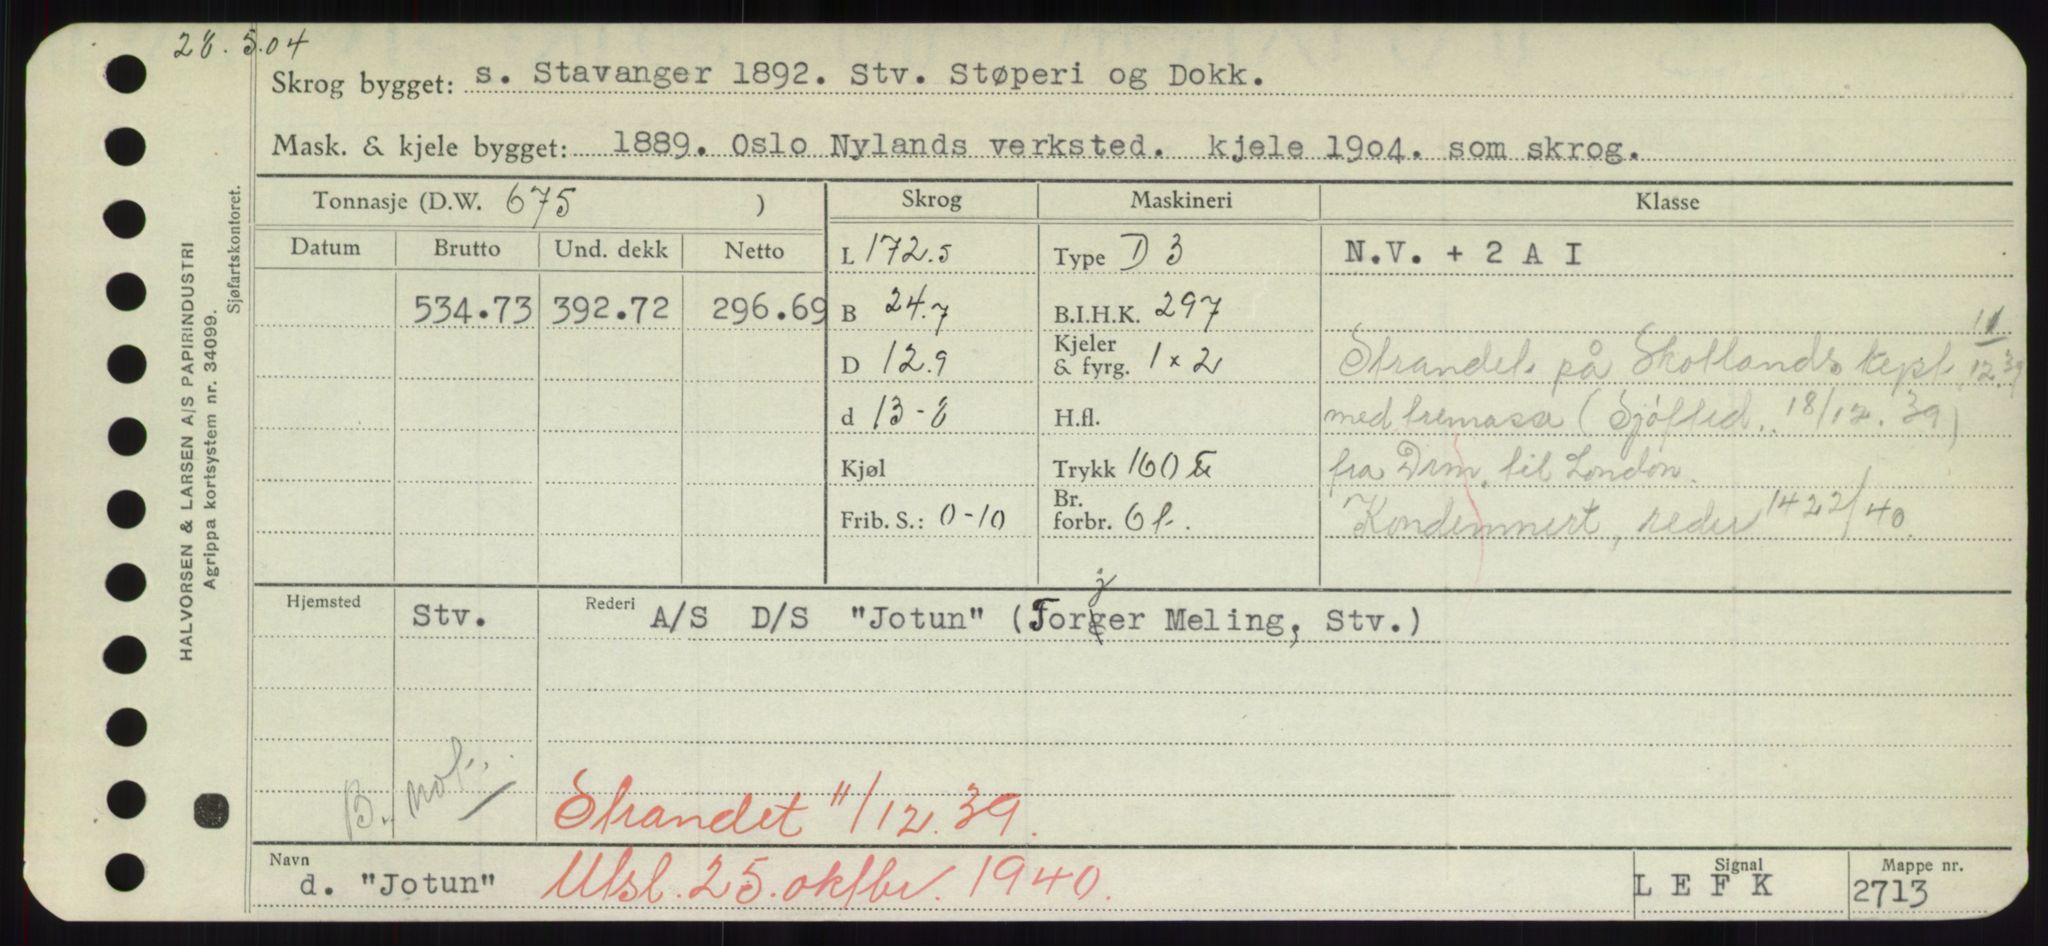 28.5.04
Skrog bygget: s. Stavanger 1892. Stv. Støperi og Dokk.
Mask. & kjele bygget: 1889. Oslo Nylands verksted. kjele 1904. som skrog.
Tonnasje (D.W. 675 ) Skrog Maskineri Klasse
Datum Brutto Und. dekk Netto L 172.5 Type D 3 N.V. + 2 A I
534.73 392.72 296.69 B 24.7 B.I.H.K. 297
D 12.9 Kjeler & fyrg. 1 x 2 Strandet på Skotlands kyst 11/12.39
d 13-8 H.fl. med tremasse (Sjøfted. 18/12.39)
Kjøl Trykk 160 fra Drm. til London.
Frib. S.: 0-10 Br. forbr. 6 t. Kondemnert, reder 22/40
Hjemsted Stv. Rederi A/S D/S "Jotun" (Torjer Meling, Stv.)
B. not.
Strandet 11/12.39.
Navn d. "Jotun" Utsl. 25. oktbr. 1940. Signal L E F K Mappe nr. 2713
HALVORSEN & LARSEN A/S PAPIRINDUSTRI
Agrippa kortsystem nr. 34099.
Sjøfartskontoret.